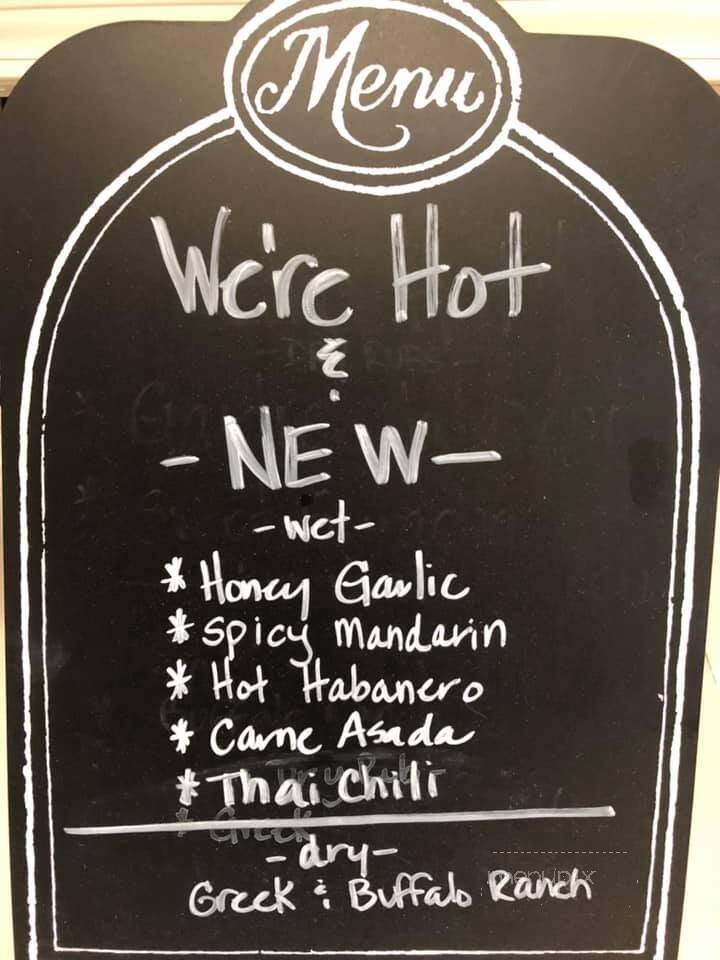 Menu
We're Hot
&
- NEW -
- wet -
* Honey Garlic
* Spicy Mandarin
* Hot Habanero
* Carne Asada
* Thai Chili
* Greek
- dry -
Greek & Buffalo Ranch
menupix